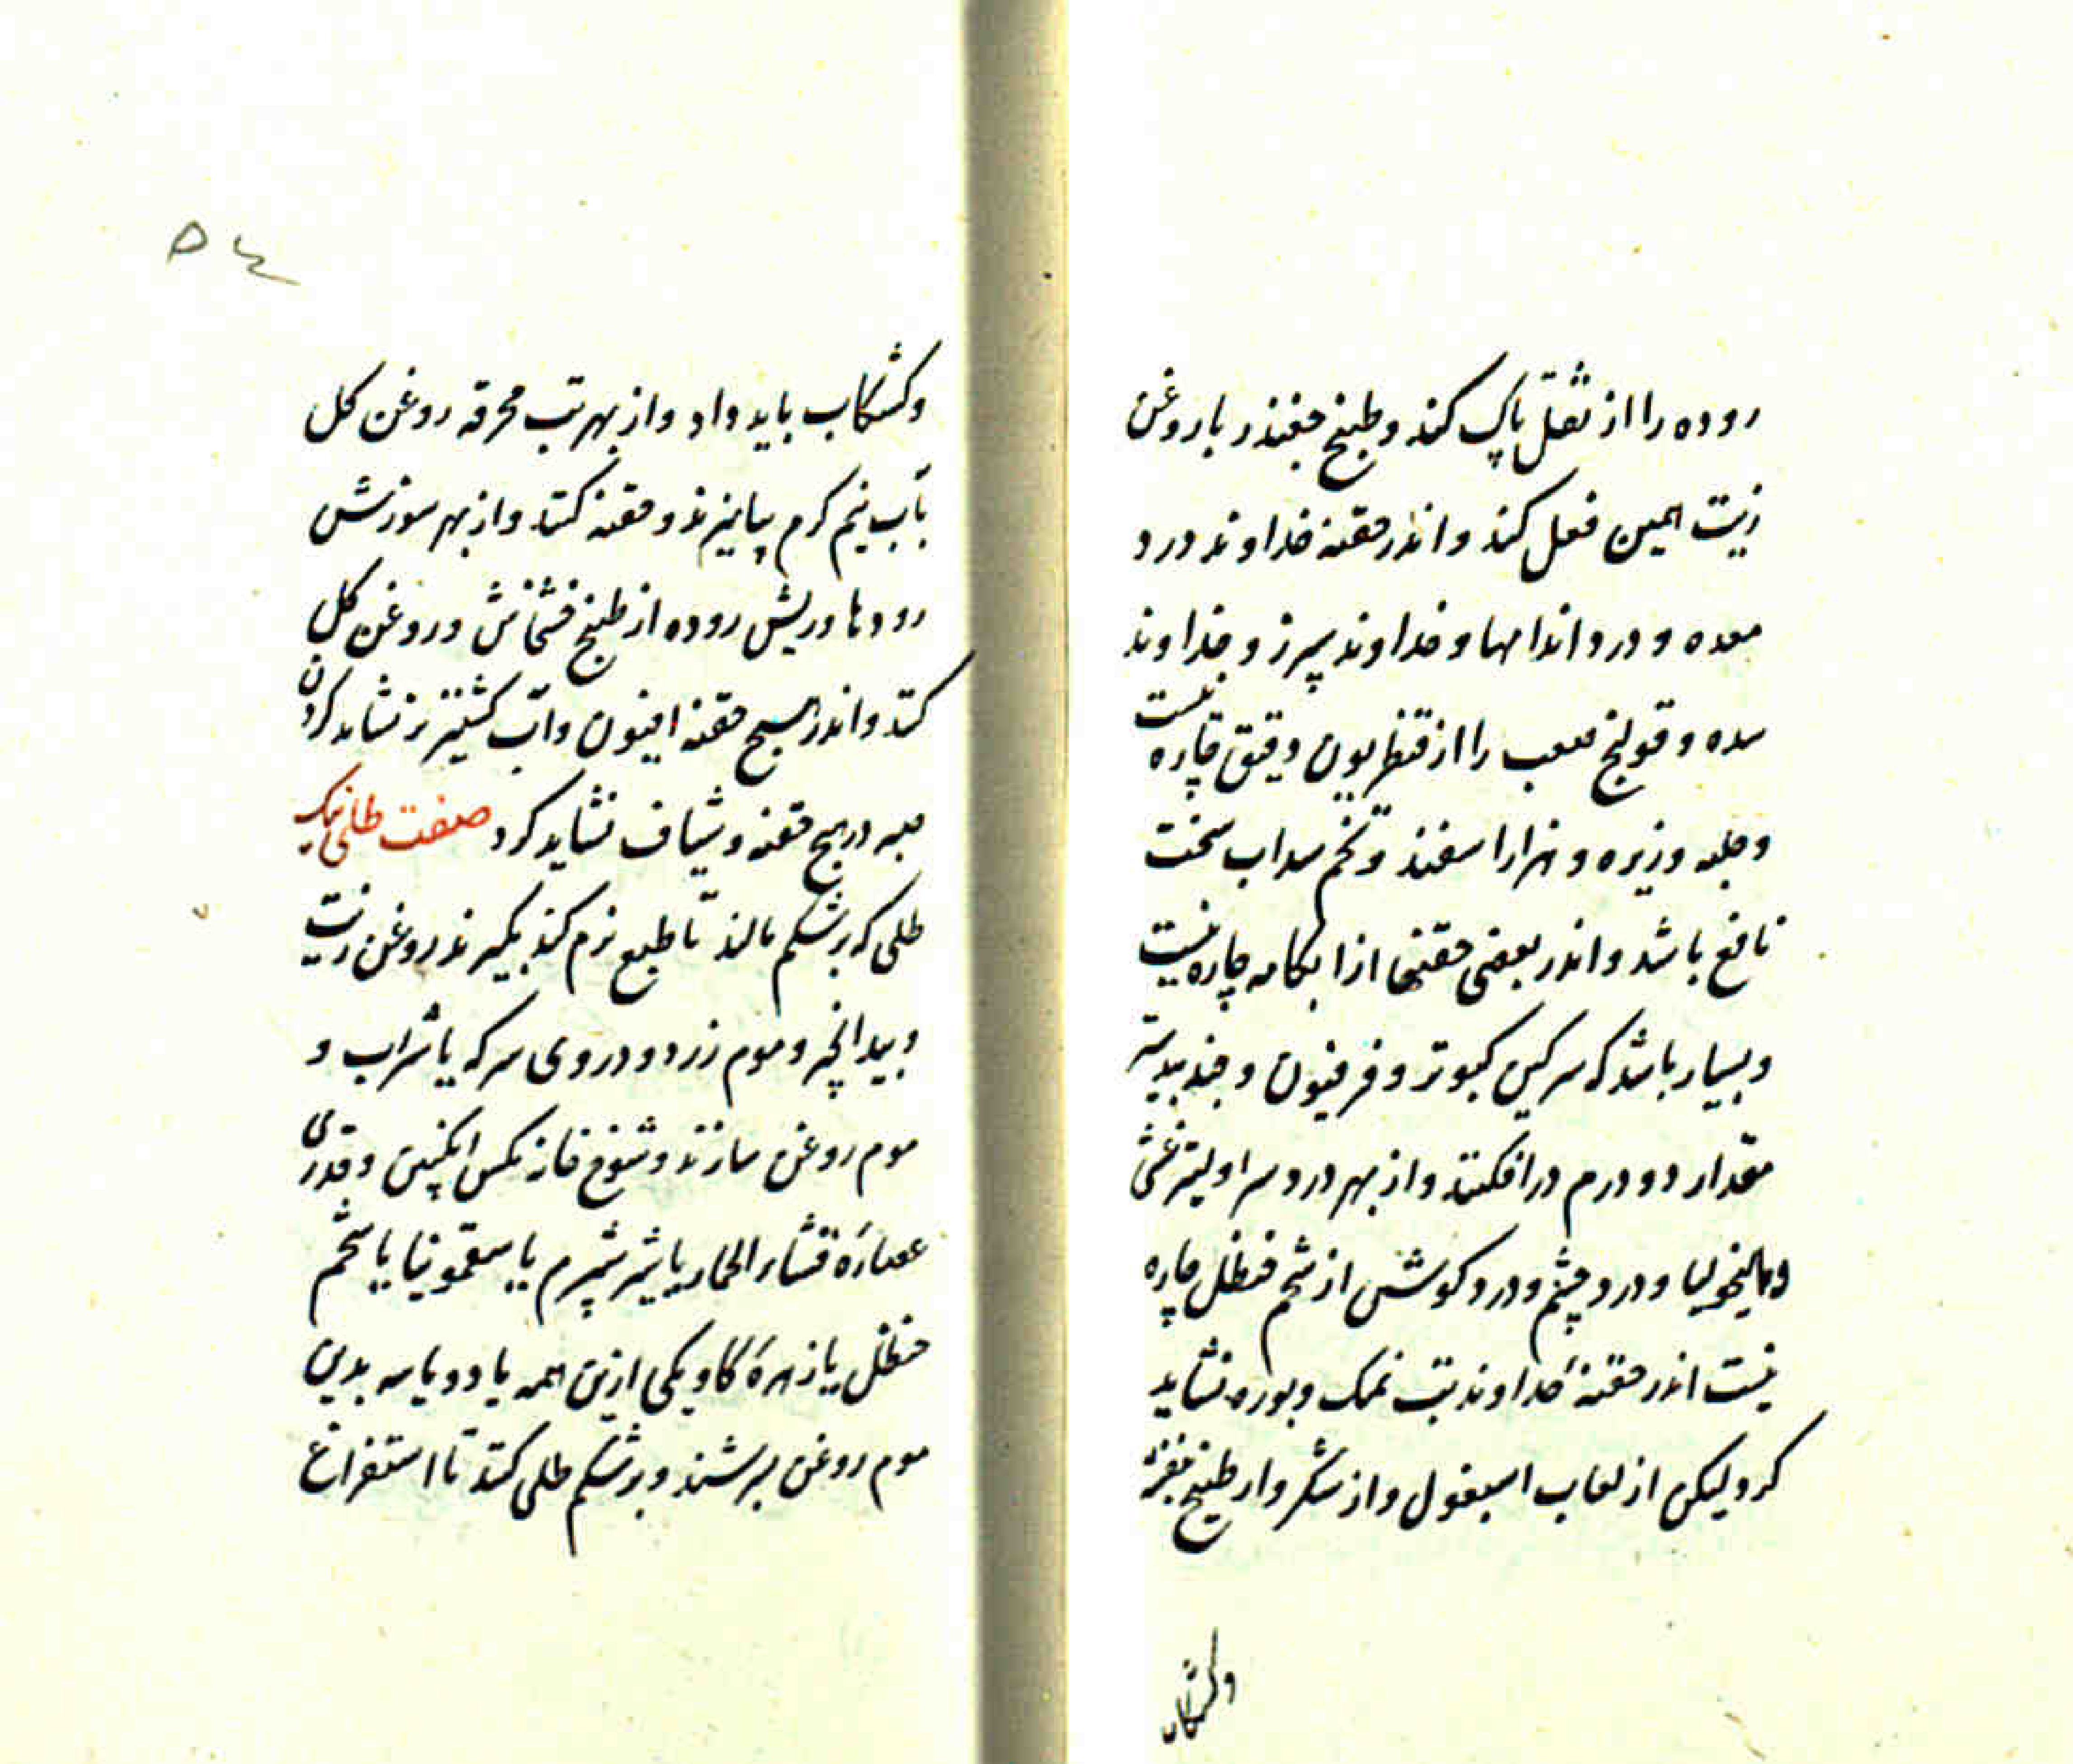 روده را از ثفل پاک کند و طبیخ چغندر با روغن
زیت همین فعل کند و اندر حقنه خداوند درد
معده و درد اندامها و خداوند سپرز و خداوند
سده و قولنج صعب را از قنطریون دقیق چاره نیست
و حلبه و زیره و هزار اسفند و تخم سداب سخت
نافع باشد و اندر بعضی حقنها از ابکامه چاره نیست
و بسیار باشد که سرکین کبوتر و فرفیون و جند بیدستر
مقدار دو درم در افکنند و از بهر درد سر و لیثرغس
و مالیخولیا و درد چشم و درد کوش از شحم حنظل چاره
نیست اندر حقنهٔ خداوند تب نمک و بوره نشاید
کرد لیکن از لعاب اسبغول و از شکر و از طبیخ بنفشه
وکشکاب
٥٤
وکشکاب باید داد و از بهر تب محرقه روغن کل
بآب نیم کرم بیامیزند و حقنه کنند و از بهر سوزش
رودها و ریش روده از طبیخ خشخاش و روغن کل
کنند و اندر هیچ حقنه افیون و آب کشنیز تر نشاید کردن
میبه در هیچ حقنه و شیاف نشاید کرد صفت طلی نیک
طلی که بر شکم مالند تا طبع نرم کند بکیرند روغن زیت
و بیدانجیر و موم زرد و دردی سرکه یا شراب و
موم روغن سازند و شوخ خانه مکس انکبین و قدری
عصارهٔ قثاء الحمار یا شیر شبرم یا سقمونیا یا شحم
حنظل یا زهرهٔ کاو یکی ازین همه یا دو یا سه بدین
موم روغن بسرشند و بر شکم طلی کنند تا استفراغ